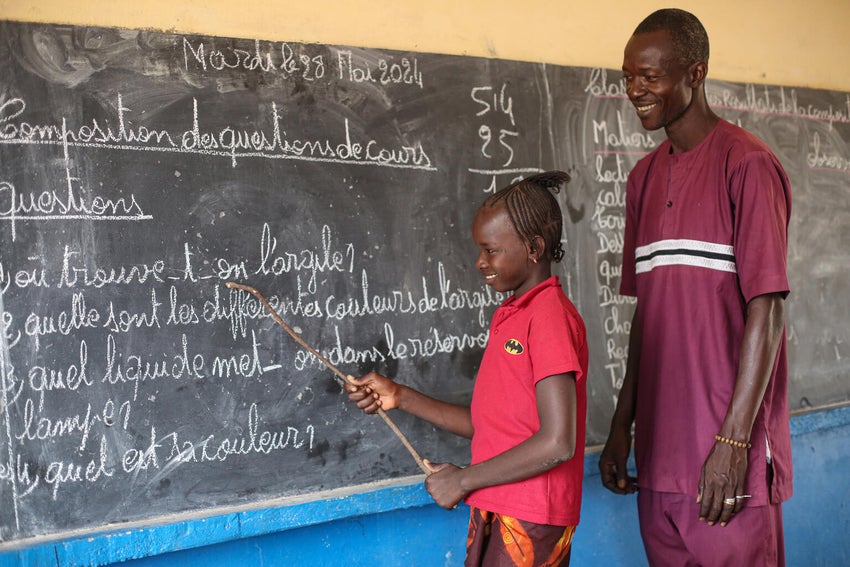 Mardi le 28 Mai 2024
Composition des questions de cours
questions
où trouve-t-on l'argile?
quelle sont les différentes couleurs de l'argile
quel liquide met-on dans le réservoi
lampe?
quel est sa couleur?
514
25
Résultat de la composit
Matiers